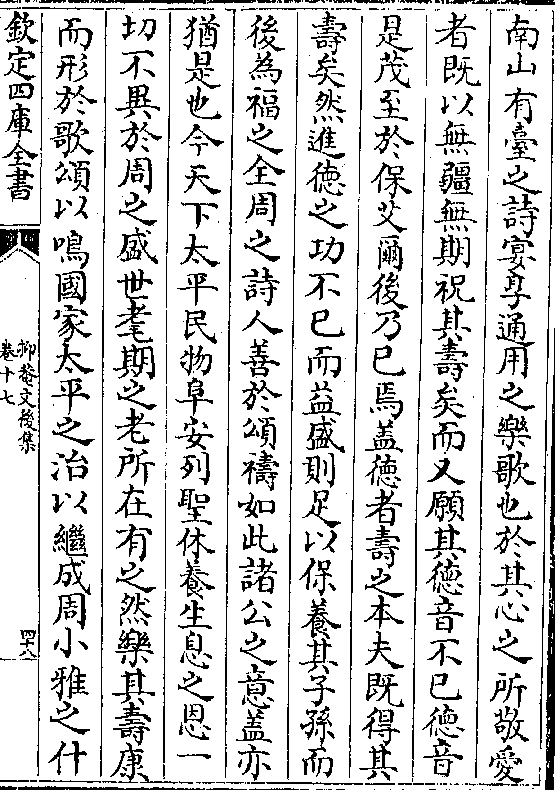 南山有臺之詩宴享通用之樂歌也於其心之所敬愛
者既以無疆無期祝其壽矣而又願其德音不已德音
是茂至於保艾爾後乃已焉蓋德者壽之本夫既得其
壽矣然進德之功不已而益盛則足以保養其子孫而
後為福之全周之詩人善於頌禱如此諸公之意蓋亦
猶是也今天下太平民物阜安列聖休養生息之恩一
切不異於周之盛世耄期之老所在有之然樂其壽康
而形於歌頌以鳴國家太平之治以繼成周小雅之什
欽定四庫全書
抑菴文後集
卷十七
四十八